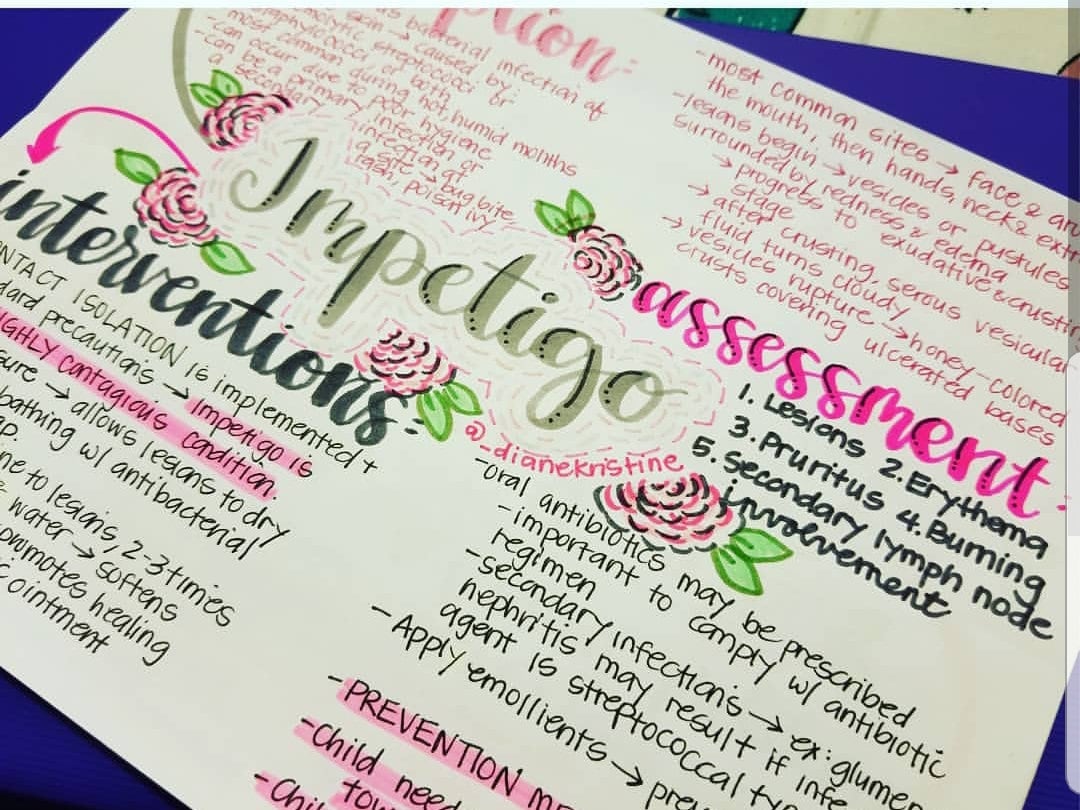 ption:
as bacterial infection of
skin → caused by:
emolytic streptococci or
staphylococci, or both
most common during hot, humid months
-can occur due to poor hygiene
-can be a primary infection or
a secondary infection at
a site → bug bite
rash, poison ivy
-most common sites → face & ar
the mouth, then hands, neck & extr
-lesions begin → vesicles or pustules
surrounded by redness & edema
→ progress to exudative & crustin
stage
→ after crusting, serous vesicular
fluid turns cloudy
→ vesicles rupture → honey-colored
crusts covering ulcerated bases
Impetigo
assessment:
1. Lesions 2. Erythema
3. Pruritus 4. Burning
5. Secondary lymph node
involvement
@-dianekristine
interventions:
ONTACT ISOLATION is implemented +
dard precautions → Impetigo is
IGHLY contagious condition.
sure → allows lesions to dry
bathing w/ antibacterial
ap.
ne to lesions, 2-3 times
water → softens
promotes healing
c ointment
-oral antibiotics may be prescribed
-important to comply w/ antibiotic
regimen
-secondary infections → ex: glomer
nephritis may result if infe
agent is streptococcal typ
-Apply emollients → prev
-PREVENTION ME
-Child need
tow
-Chil